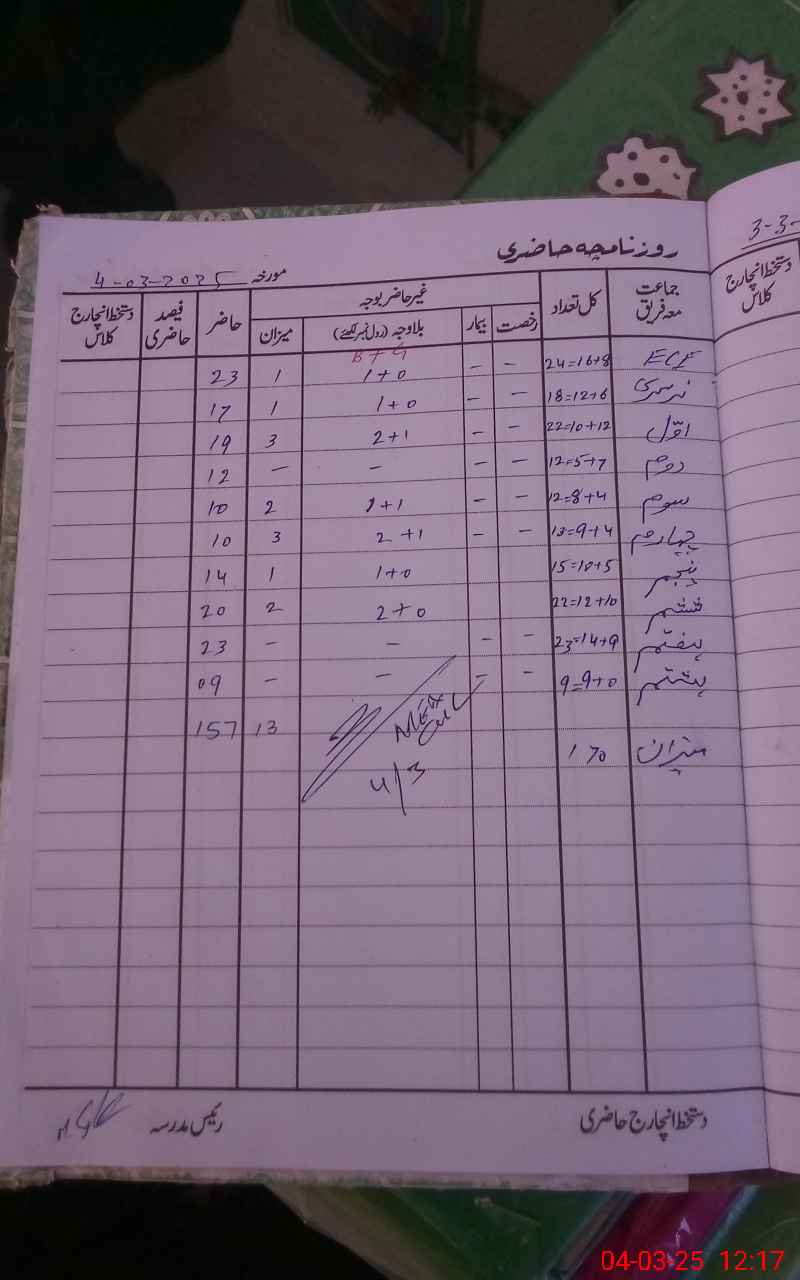 روزنامچہ حاضری
مورخہ 4-03-2025
3-3-
جماعت معہ فریق | کل تعداد | غیر حاضر بوجہ | حاضر | فیصد حاضری | دستخط انچارج کلاس
رخصت | بیمار | بلاوجہ (رول نمبر لکھئے) | میزان
دستخط انچارج کلاس
B+G
ECE | 24=16+8 | – | – | 1+0 | 1 | 23
نرسری | 18=12+6 | – | – | 1+0 | 1 | 17
اوّل | 22=10+12 | – | – | 2+1 | 3 | 19
دوم | 12=5+7 | – | – | – | – | 12
سوم | 12=8+4 | – | – | 1+1 | 2 | 10
چہارم | 13=9+4 | – | – | 2+1 | 3 | 10
پنجم | 15=10+5 | 1+0 | 1 | 14
ششم | 22=12+10 | 2+0 | 2 | 20
ہفتم | 23=14+9 | – | – | – | – | 23
ہشتم | 9=9+0 | – | – | – | – | 09
13 | 157
میزان | 170
4/3
دستخط انچارج حاضری
رئیس مدرسہ
04-03-25 12:17